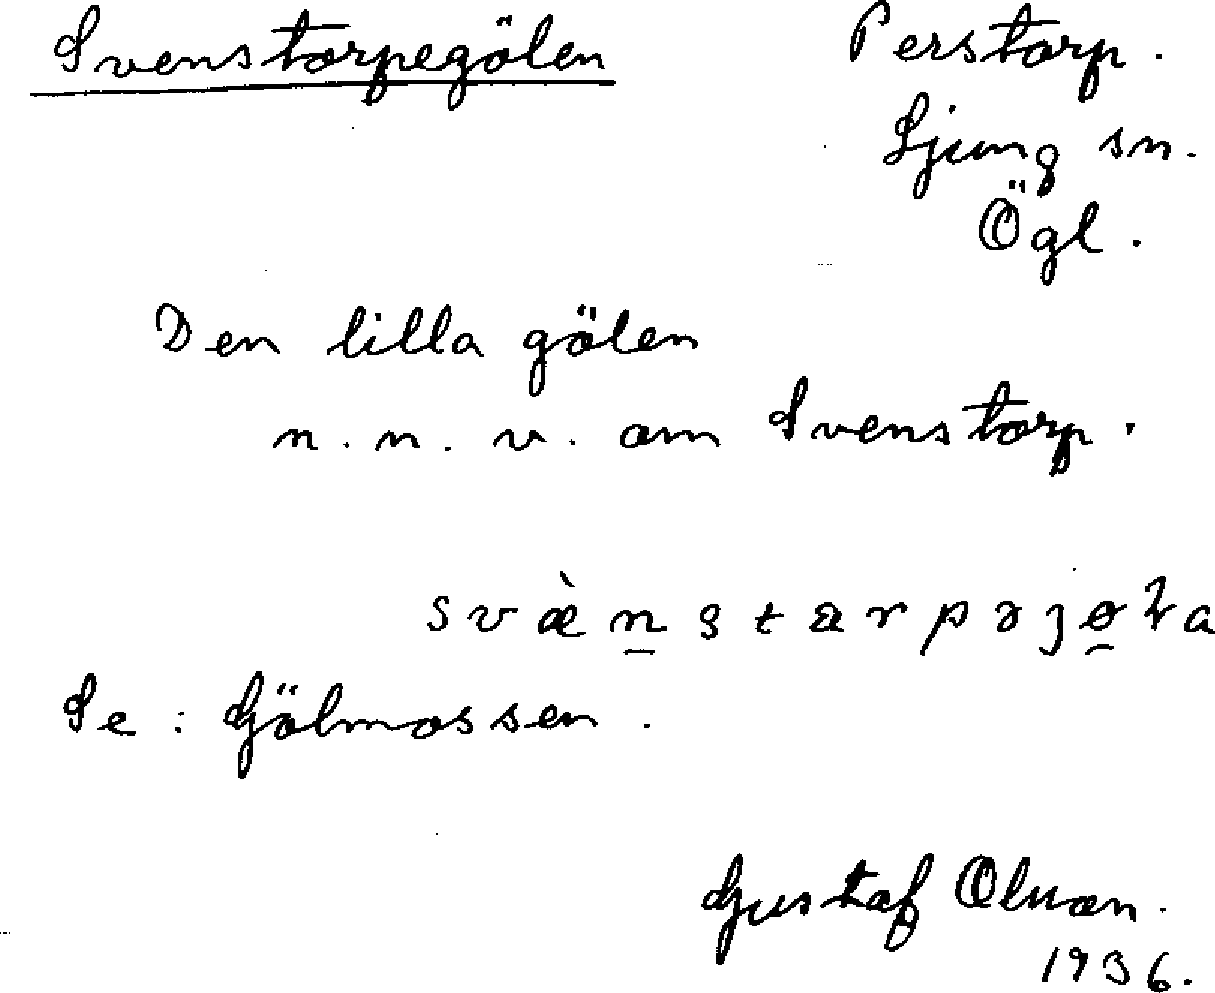 Svenstorpegölen
Perstorp.
Ljung sn.
Ögl.
Den lilla gölen
n.n.v. om Svenstorp.
Se: Gölmossen.
Gustaf
1936.